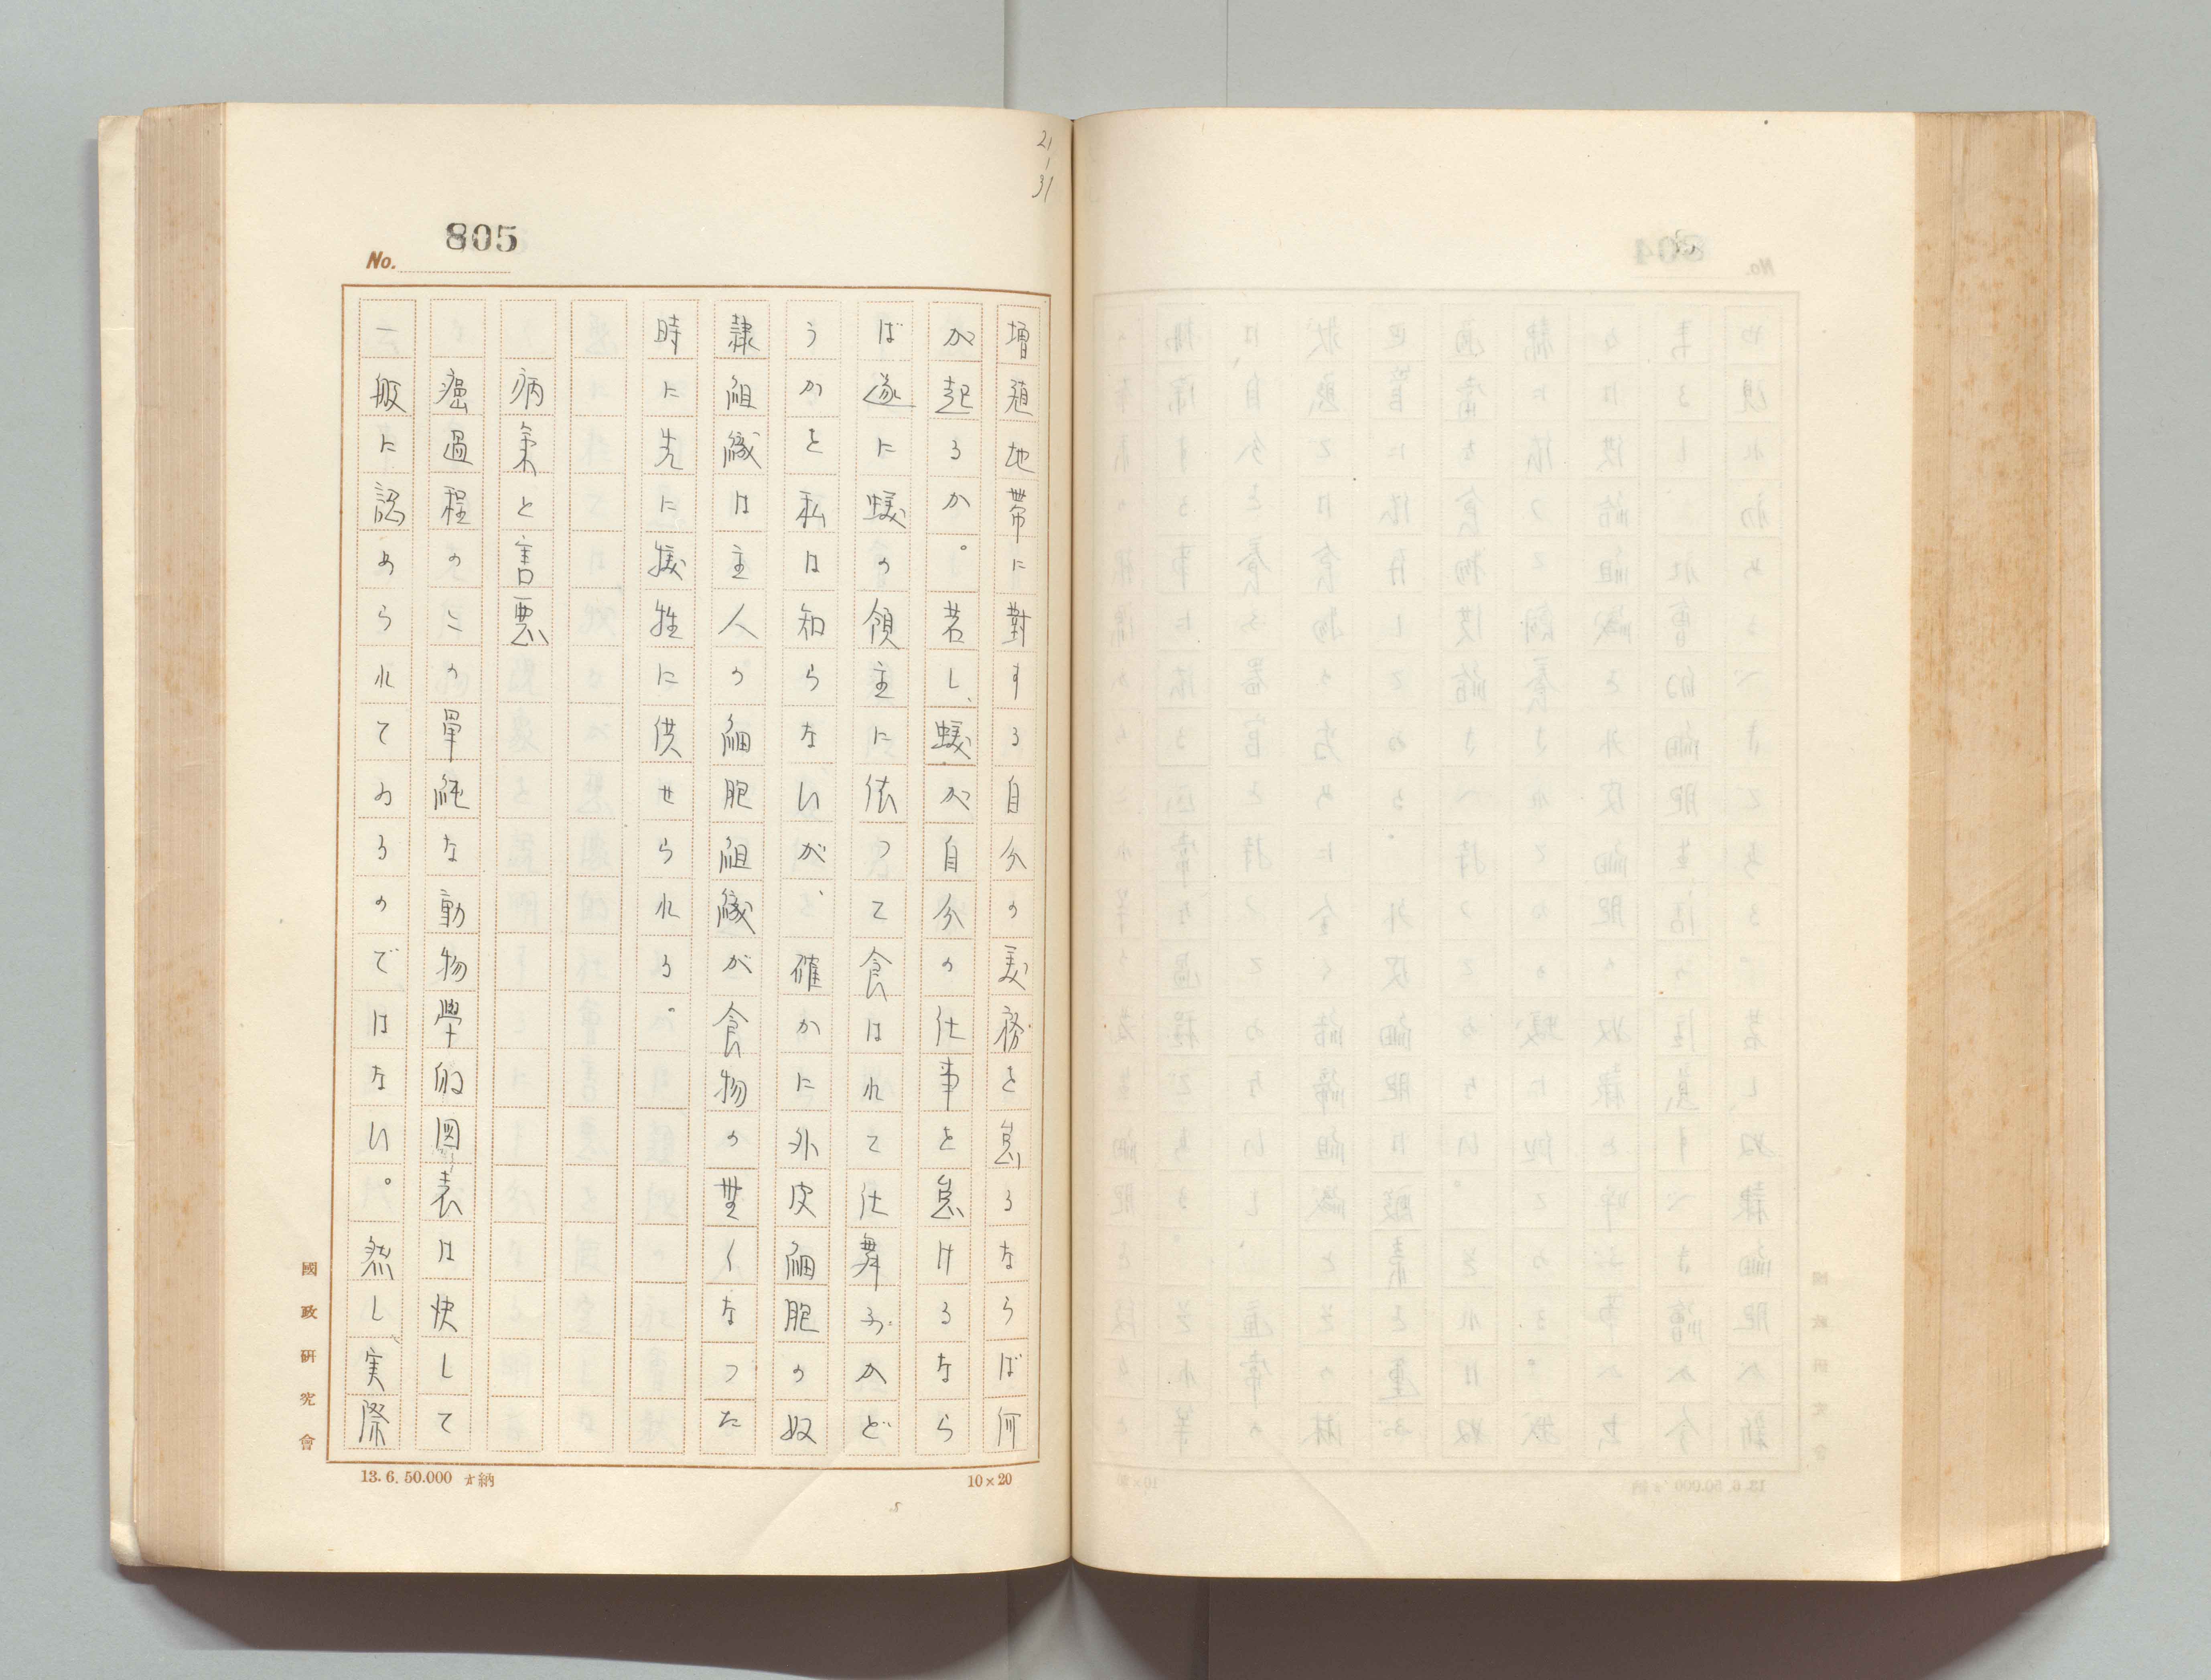 21
1
31
No. 805
増殖地帯に對する自分の義務を怠るならば何
が起るか。若し、蟻が自分の仕事を怠けるなら
ば遂に蟻の領主に依つて食はれて仕舞ふかど
うかを私は知らないが、確かに外皮細胞の奴
隷組織は主人の細胞組織が食物の無くなつた
時に先に犠牲に供せられる。
病氣と害悪
癌過程のこの單純な動物學的圖表は決して
一般に認められてゐるのではない。然し、実際
國政研究會
13.6.50.000 納
10×20